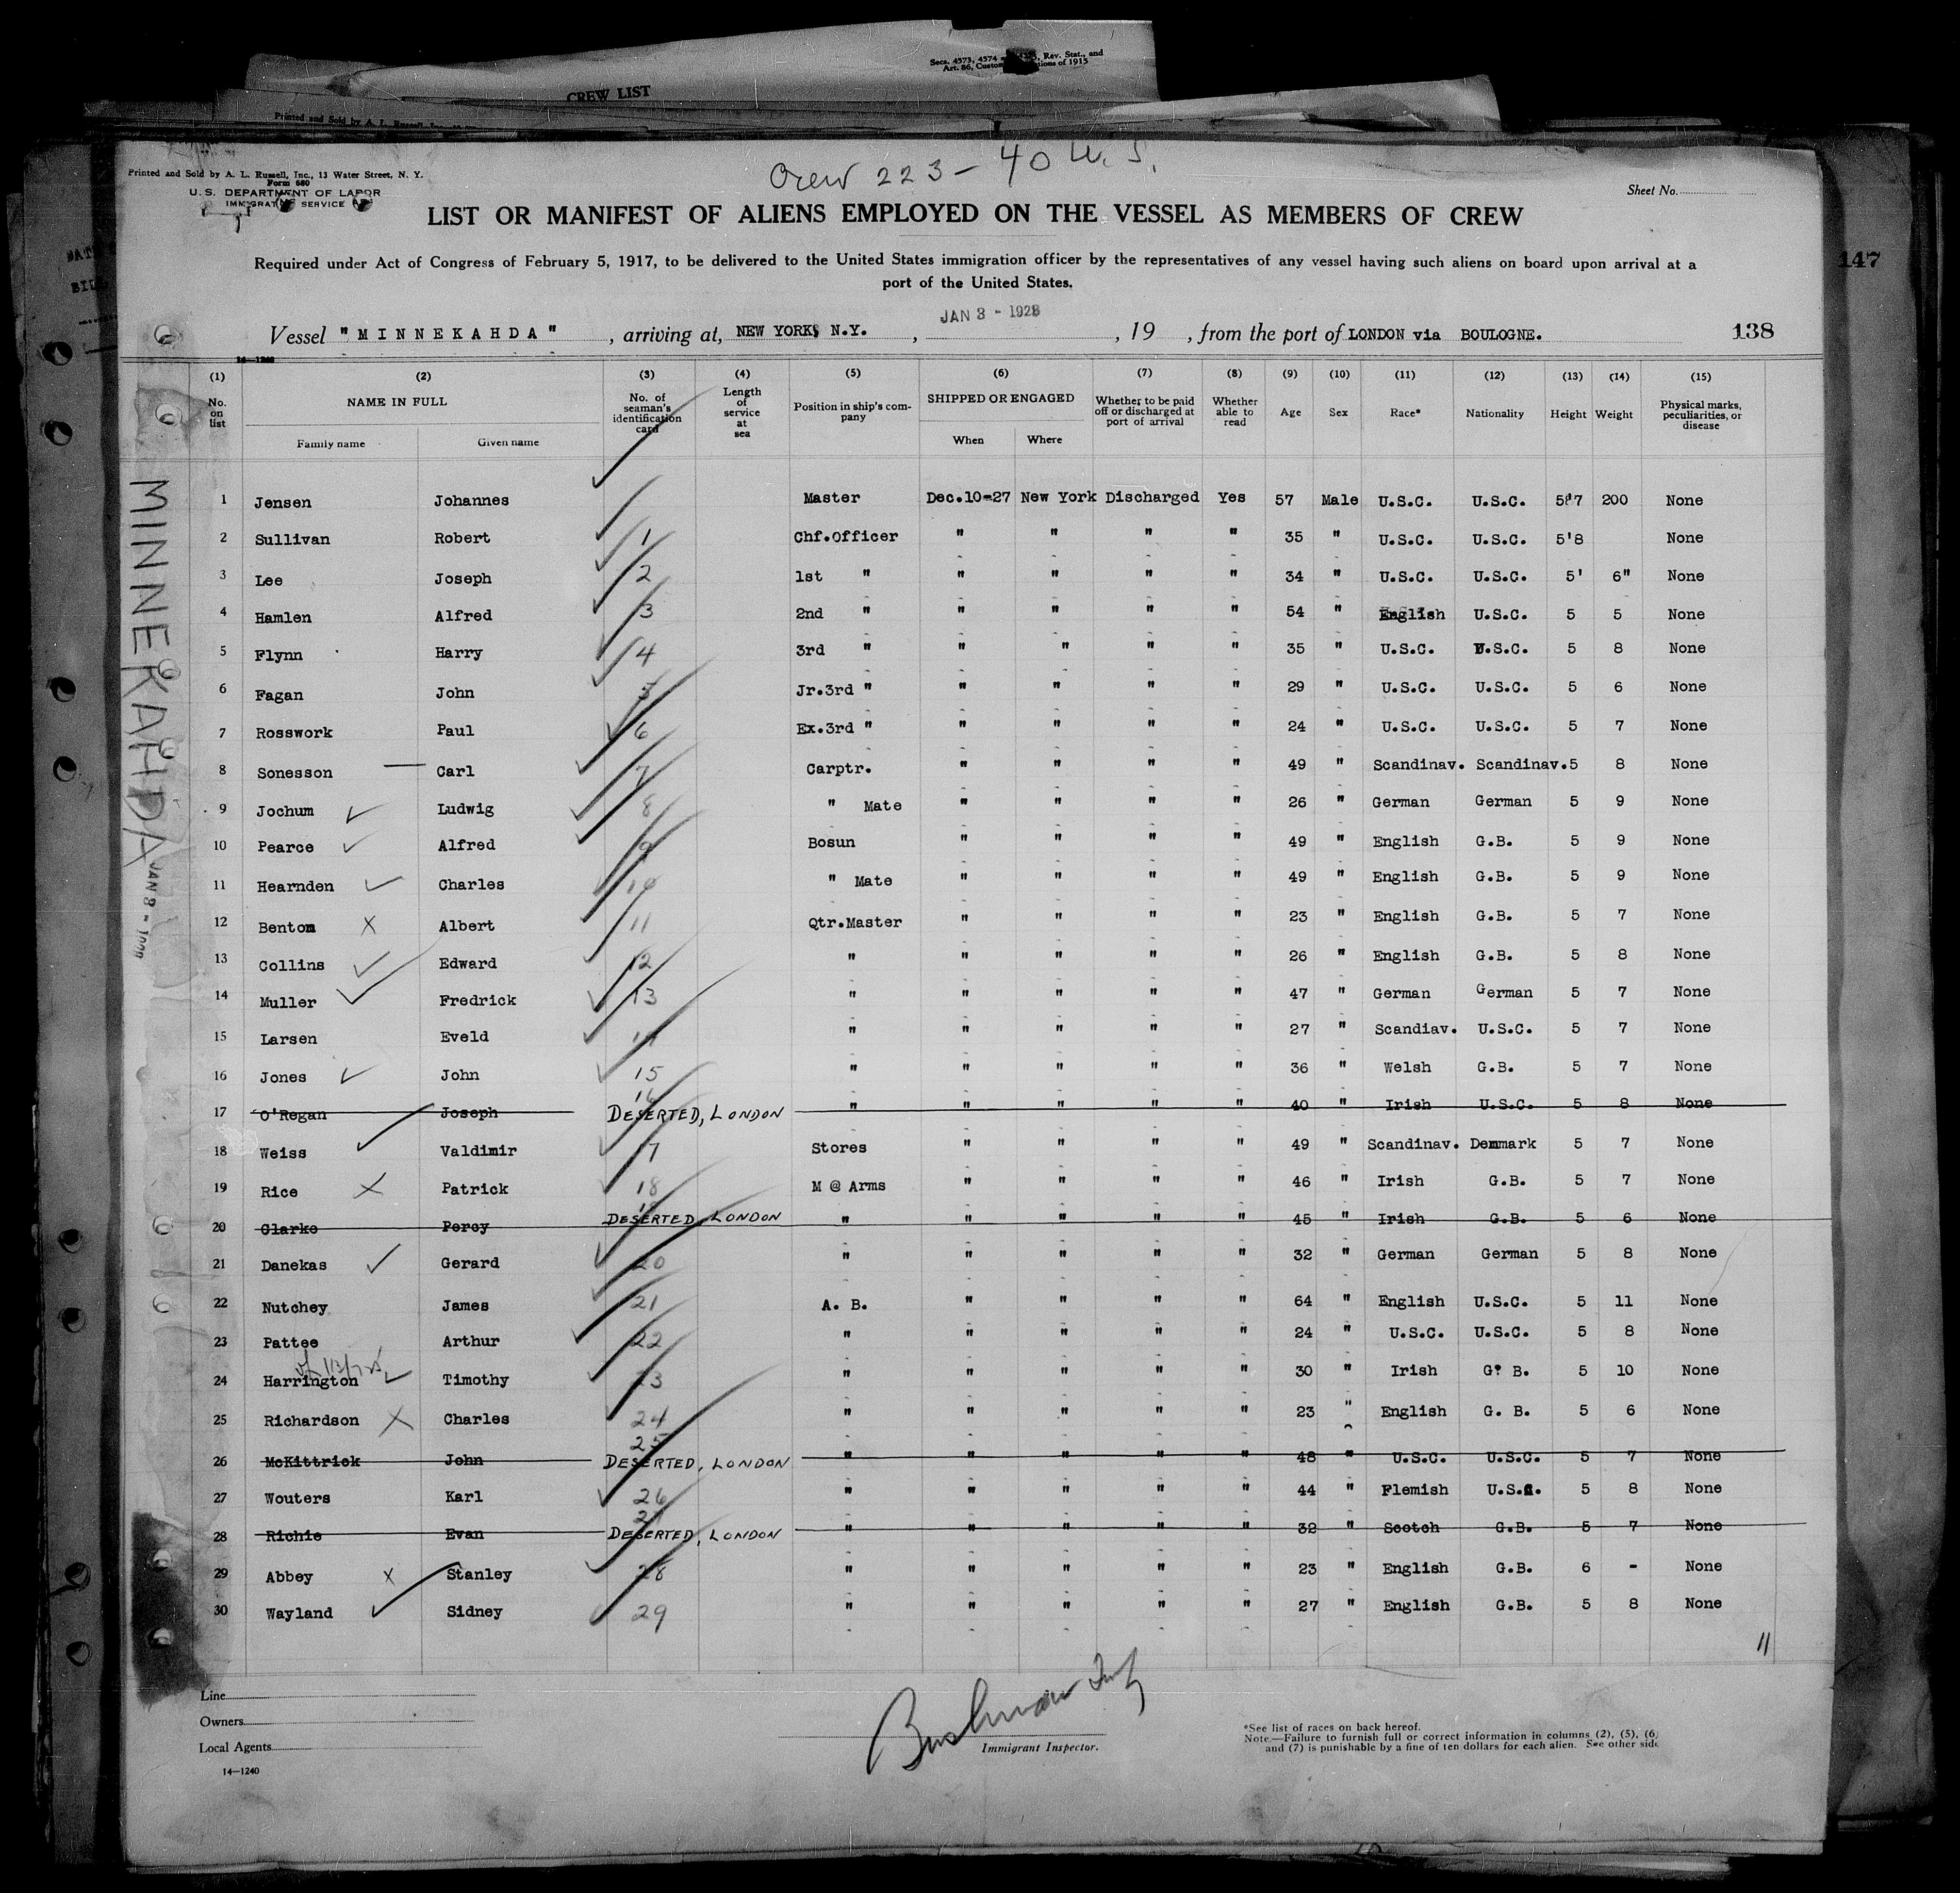 Secs. 4573, 4574 Rev. Stat., and
Art. 86, Custom tions of 1915
CREW LIST
Printed and Sold by A. L. Russell, Inc.
Crew 223 - 40 U. S.
Printed and Sold by A. L. Russell, Inc., 13 Water Street, N. Y.
Form 680
U. S. DEPARTMENT OF LABOR
IMMIGRATION SERVICE
Sheet No.
LIST OR MANIFEST OF ALIENS EMPLOYED ON THE VESSEL AS MEMBERS OF CREW
Required under Act of Congress of February 5, 1917, to be delivered to the United States immigration officer by the representatives of any vessel having such aliens on board upon arrival at a
port of the United States.
147
JAN 3 - 1928
Vessel "MINNEKAHDA", arriving at, NEW YORK, N.Y., , 19 , from the port of LONDON via BOULOGNE. 138
14-1240
(1) (2) (3) (4) (5) (6) (7) (8) (9) (10) (11) (12) (13) (14) (15)
No. on list NAME IN FULL No. of seaman's identification card Length of service at sea Position in ship's company SHIPPED OR ENGAGED Whether to be paid off or discharged at port of arrival Whether able to read Age Sex Race* Nationality Height Weight Physical marks, peculiarities, or disease
Family name Given name When Where
1 Jensen Johannes Master Dec.10-27 New York Discharged Yes 57 Male U.S.C. U.S.C. 5'7 200 None
2 Sullivan Robert 1 Chf.Officer " " " " 35 " U.S.C. U.S.C. 5'8 None
3 Lee Joseph 2 1st " " " " " 34 " U.S.C. U.S.C. 5' 6" None
4 Hamlen Alfred 3 2nd " " " " " 54 " English U.S.C. 5 5 None
5 Flynn Harry 4 3rd " " " " " 35 " U.S.C. U.S.C. 5 8 None
6 Fagan John 5 Jr.3rd " " " " " 29 " U.S.C. U.S.C. 5 6 None
7 Rosswork Paul 6 Ex.3rd " " " " " 24 " U.S.C. U.S.C. 5 7 None
8 Sonesson — Carl 7 Carptr. " " " " 49 " Scandinav. Scandinav. 5 8 None
9 Jochum ✓ Ludwig 8 " Mate " " " " 26 " German German 5 9 None
10 Pearce ✓ Alfred 9 Bosun " " " " 49 " English G.B. 5 9 None
11 Hearnden ✓ Charles 10 " Mate " " " " 49 " English G.B. 5 9 None
12 Bentom X Albert 11 Qtr.Master " " " " 23 " English G.B. 5 7 None
13 Collins ✓ Edward 12 " " " " " 26 " English G.B. 5 8 None
14 Muller ✓ Fredrick 13 " " " " " 47 " German German 5 7 None
15 Larsen Eveld 14 " " " " " 27 " Scandiav. U.S.C. 5 7 None
16 Jones ✓ John 15 " " " " " 36 " Welsh G.B. 5 7 None
17 O'Regan Joseph 16 DESERTED, LONDON " " " " " 40 " Irish U.S.C. 5 8 None
18 Weiss ✓ Valdimir 17 Stores " " " " 49 " Scandinav. Denmark 5 7 None
19 Rice X Patrick 18 M @ Arms " " " " 46 " Irish G.B. 5 7 None
20 Clarke Percy 19 DESERTED, LONDON " " " " " 45 " Irish G.B. 5 6 None
21 Danekas ✓ Gerard 20 " " " " " 32 " German German 5 8 None
22 Nutchey James 21 A. B. " " " " 64 " English U.S.C. 5 11 None
23 Pattee Arthur 22 " " " " " 24 " U.S.C. U.S.C. 5 8 None
24 Harrington ✓ Timothy 23 " " " " " 30 " Irish G. B. 5 10 None
25 Richardson X Charles 24 " " " " " 23 " English G. B. 5 6 None
26 McKittrick John 25 DESERTED, LONDON " " " " " 48 " U.S.C. U.S.C. 5 7 None
27 Wouters Karl 26 " " " " " 44 " Flemish U.S.C. 5 8 None
28 Richie Evan 27 DESERTED, LONDON " " " " " 32 " Scotch G.B. 5 7 None
29 Abbey X Stanley 28 " " " " " 23 " English G.B. 6 - None
30 Wayland ✓ Sidney 29 " " " " " 27 " English G.B. 5 8 None
11
MINNEKAHDA
JAN 3 -
Line
Owners
Local Agents
14—1240
Immigrant Inspector.
*See list of races on back hereof.
Note.—Failure to furnish full or correct information in columns (2), (5), (6)
and (7) is punishable by a fine of ten dollars for each alien. See other side